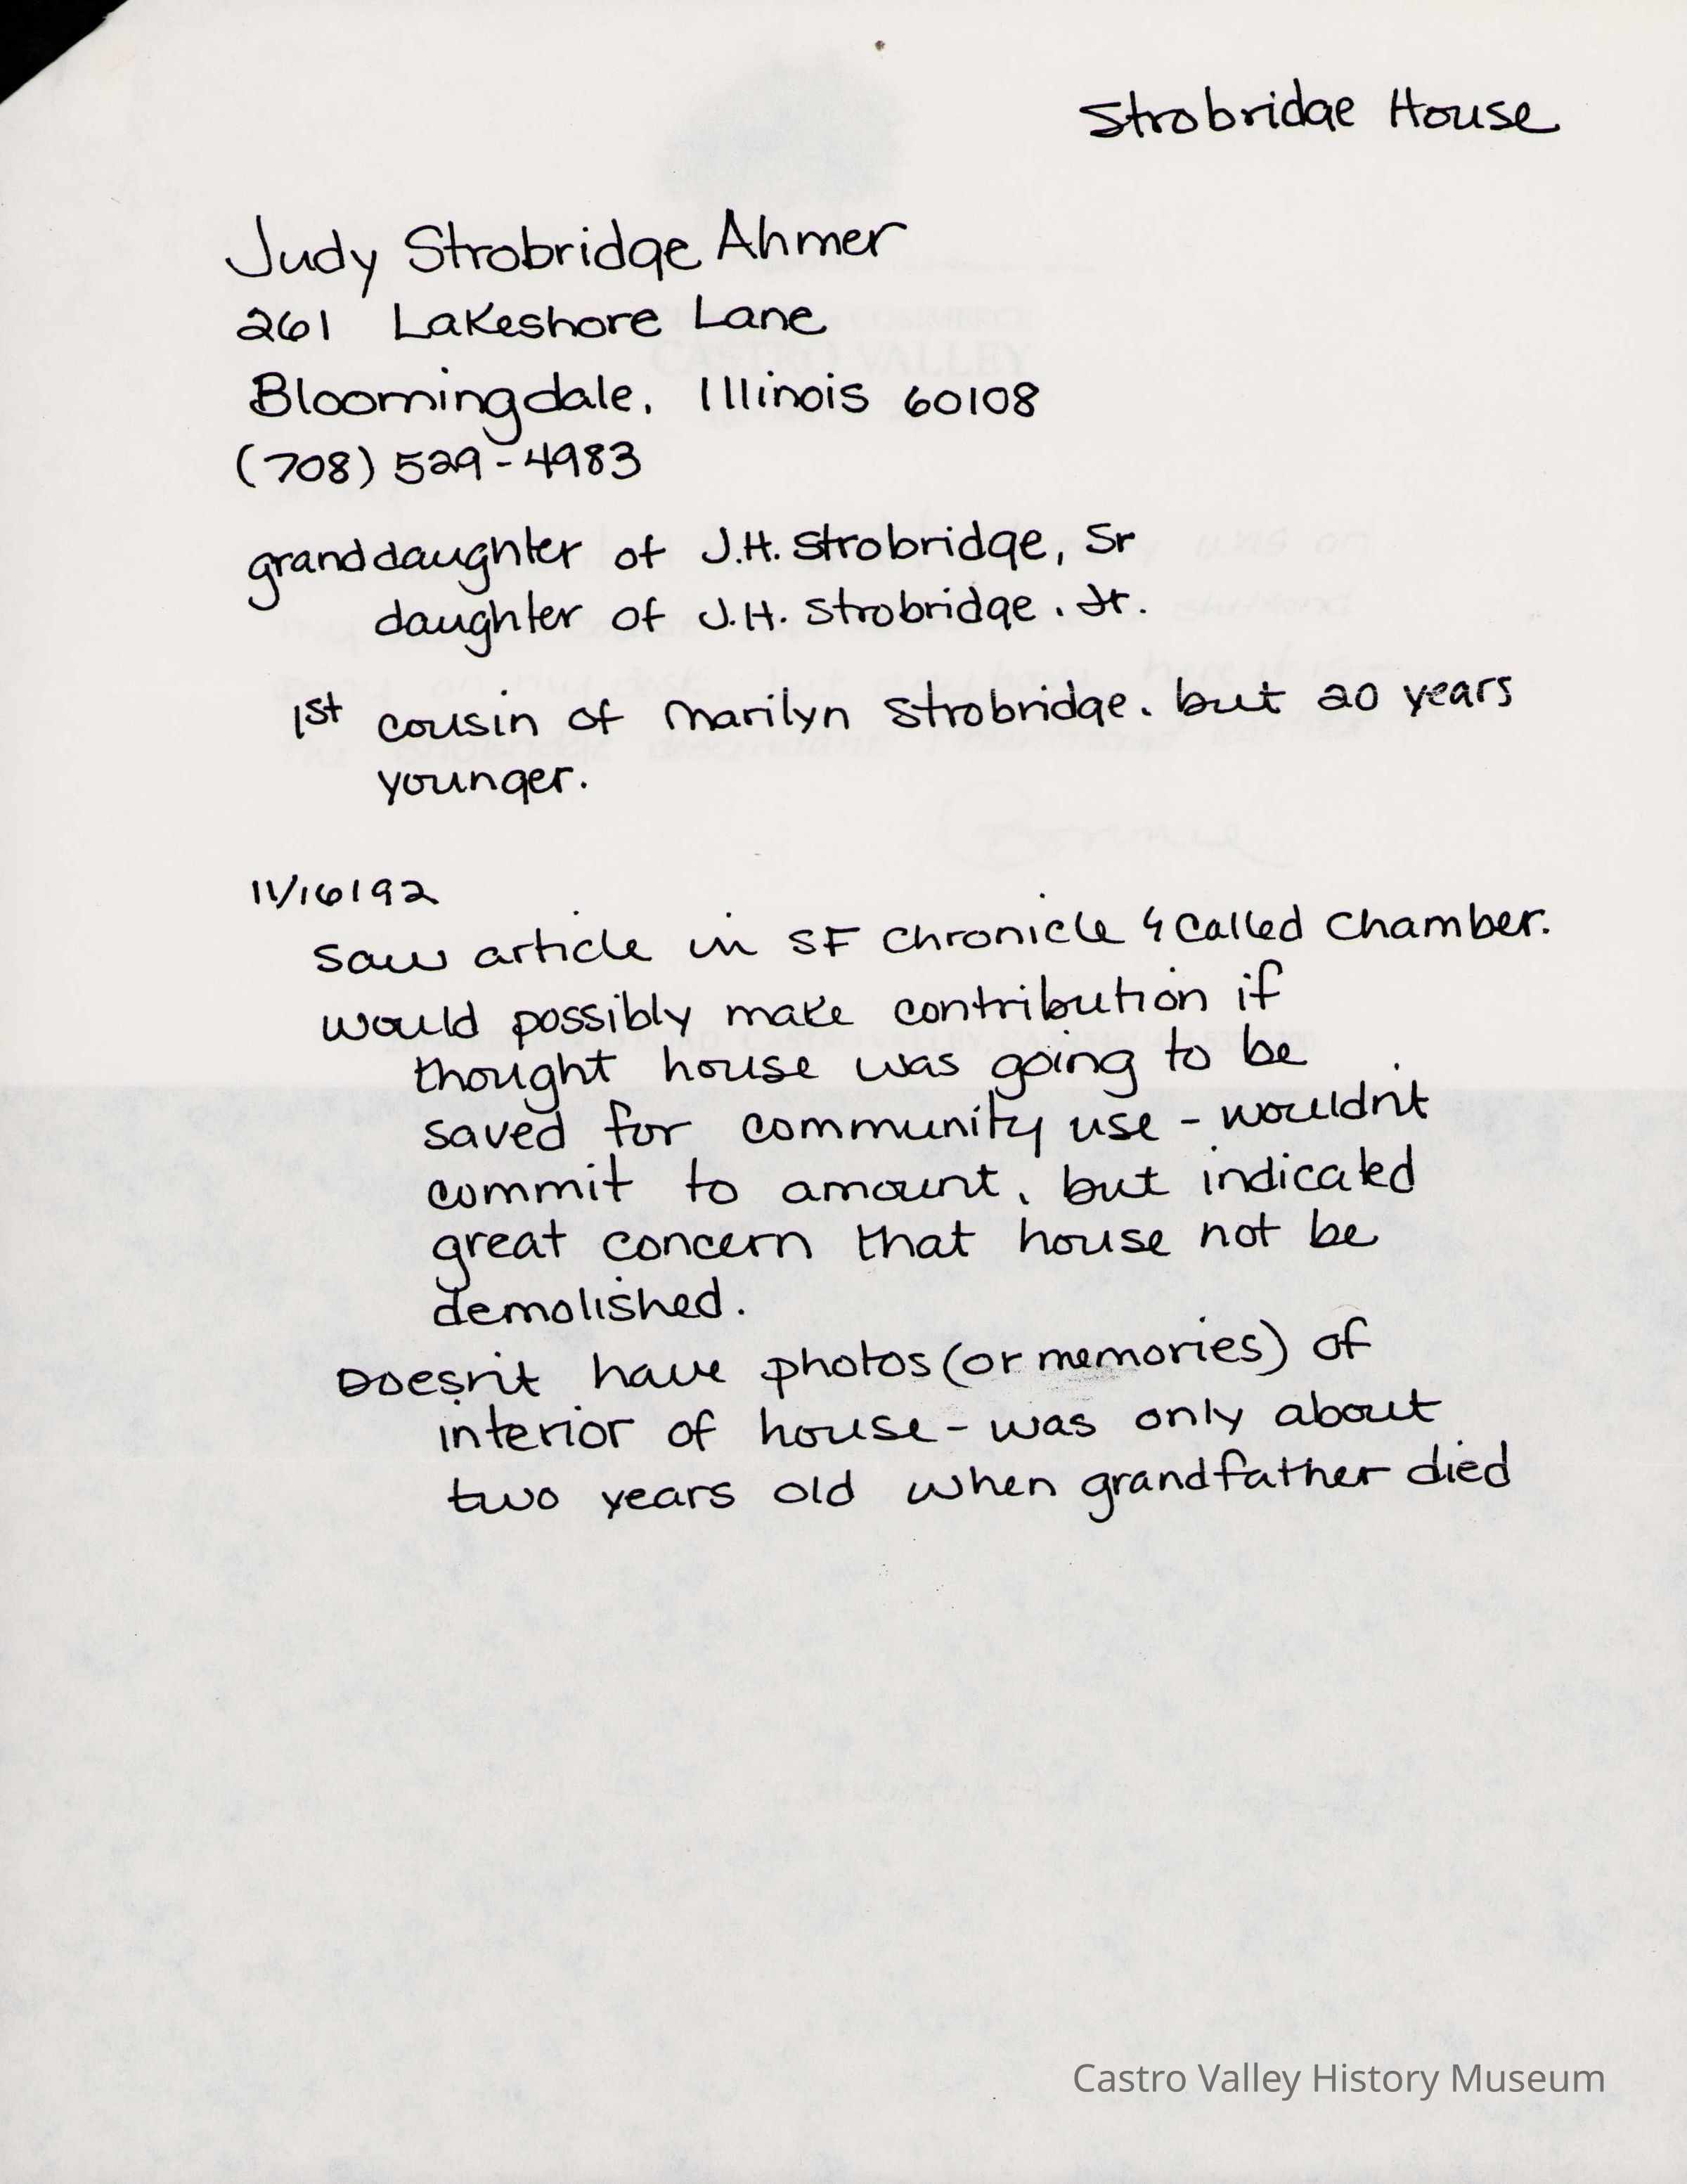 Strobridge House
Judy Strobridge Ahmer
261 Lakeshore Lane
Bloomingdale, Illinois 60108
(708) 529-4983
granddaughter of J.H. Strobridge, Sr
daughter of J.H. Strobridge, Jr.
1st cousin of Marilyn Strobridge, but 20 years
younger.
11/16/92
Saw article in SF Chronicle & called Chamber.
would possibly make contribution if
thought house was going to be
saved for community use - wouldn't
commit to amount, but indicated
great concern that house not be
demolished.
Doesn't have photos (or memories) of
interior of house - was only about
two years old when grandfather died
Castro Valley History Museum